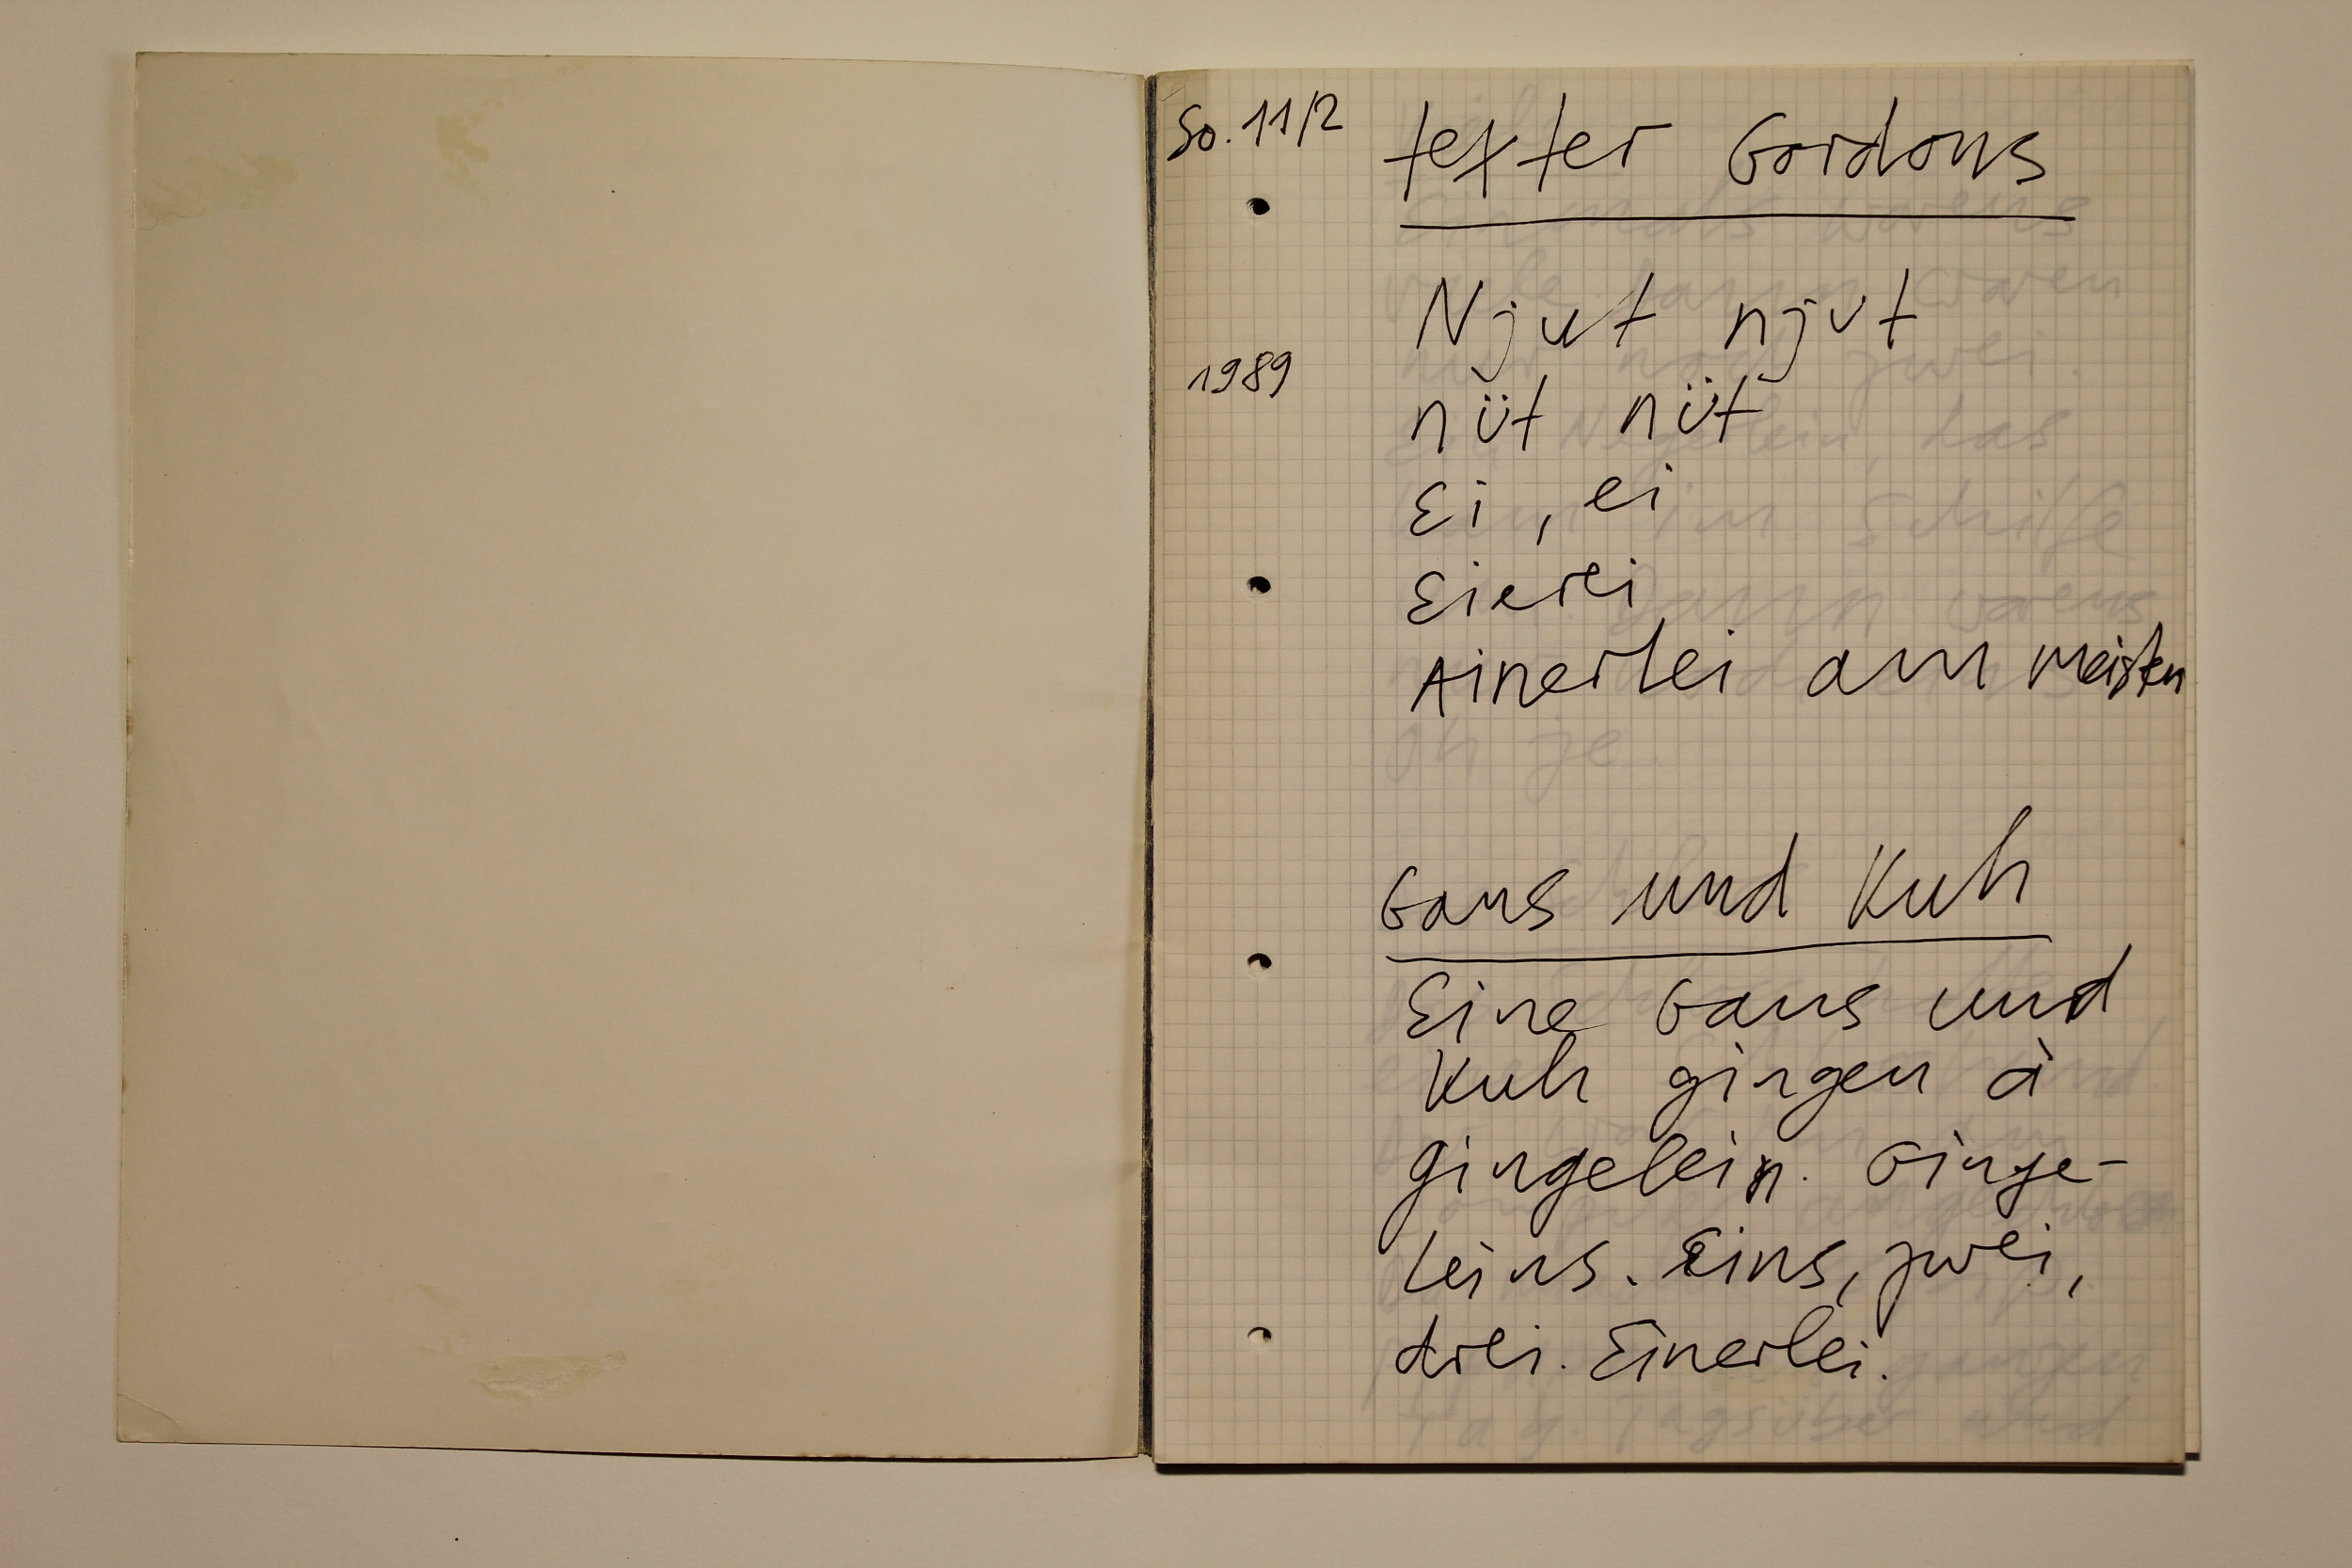 So. 11/2
texter Gordons
Njut njut
1989
nüt nüt
Ei, ei
Eierei
Ainerlei am meisten
Gans und Kuh
Eine Gans und
Kuh gingen à
gingelein. Ginge-
leins. Eins, zwei,
drei. Einerlei.